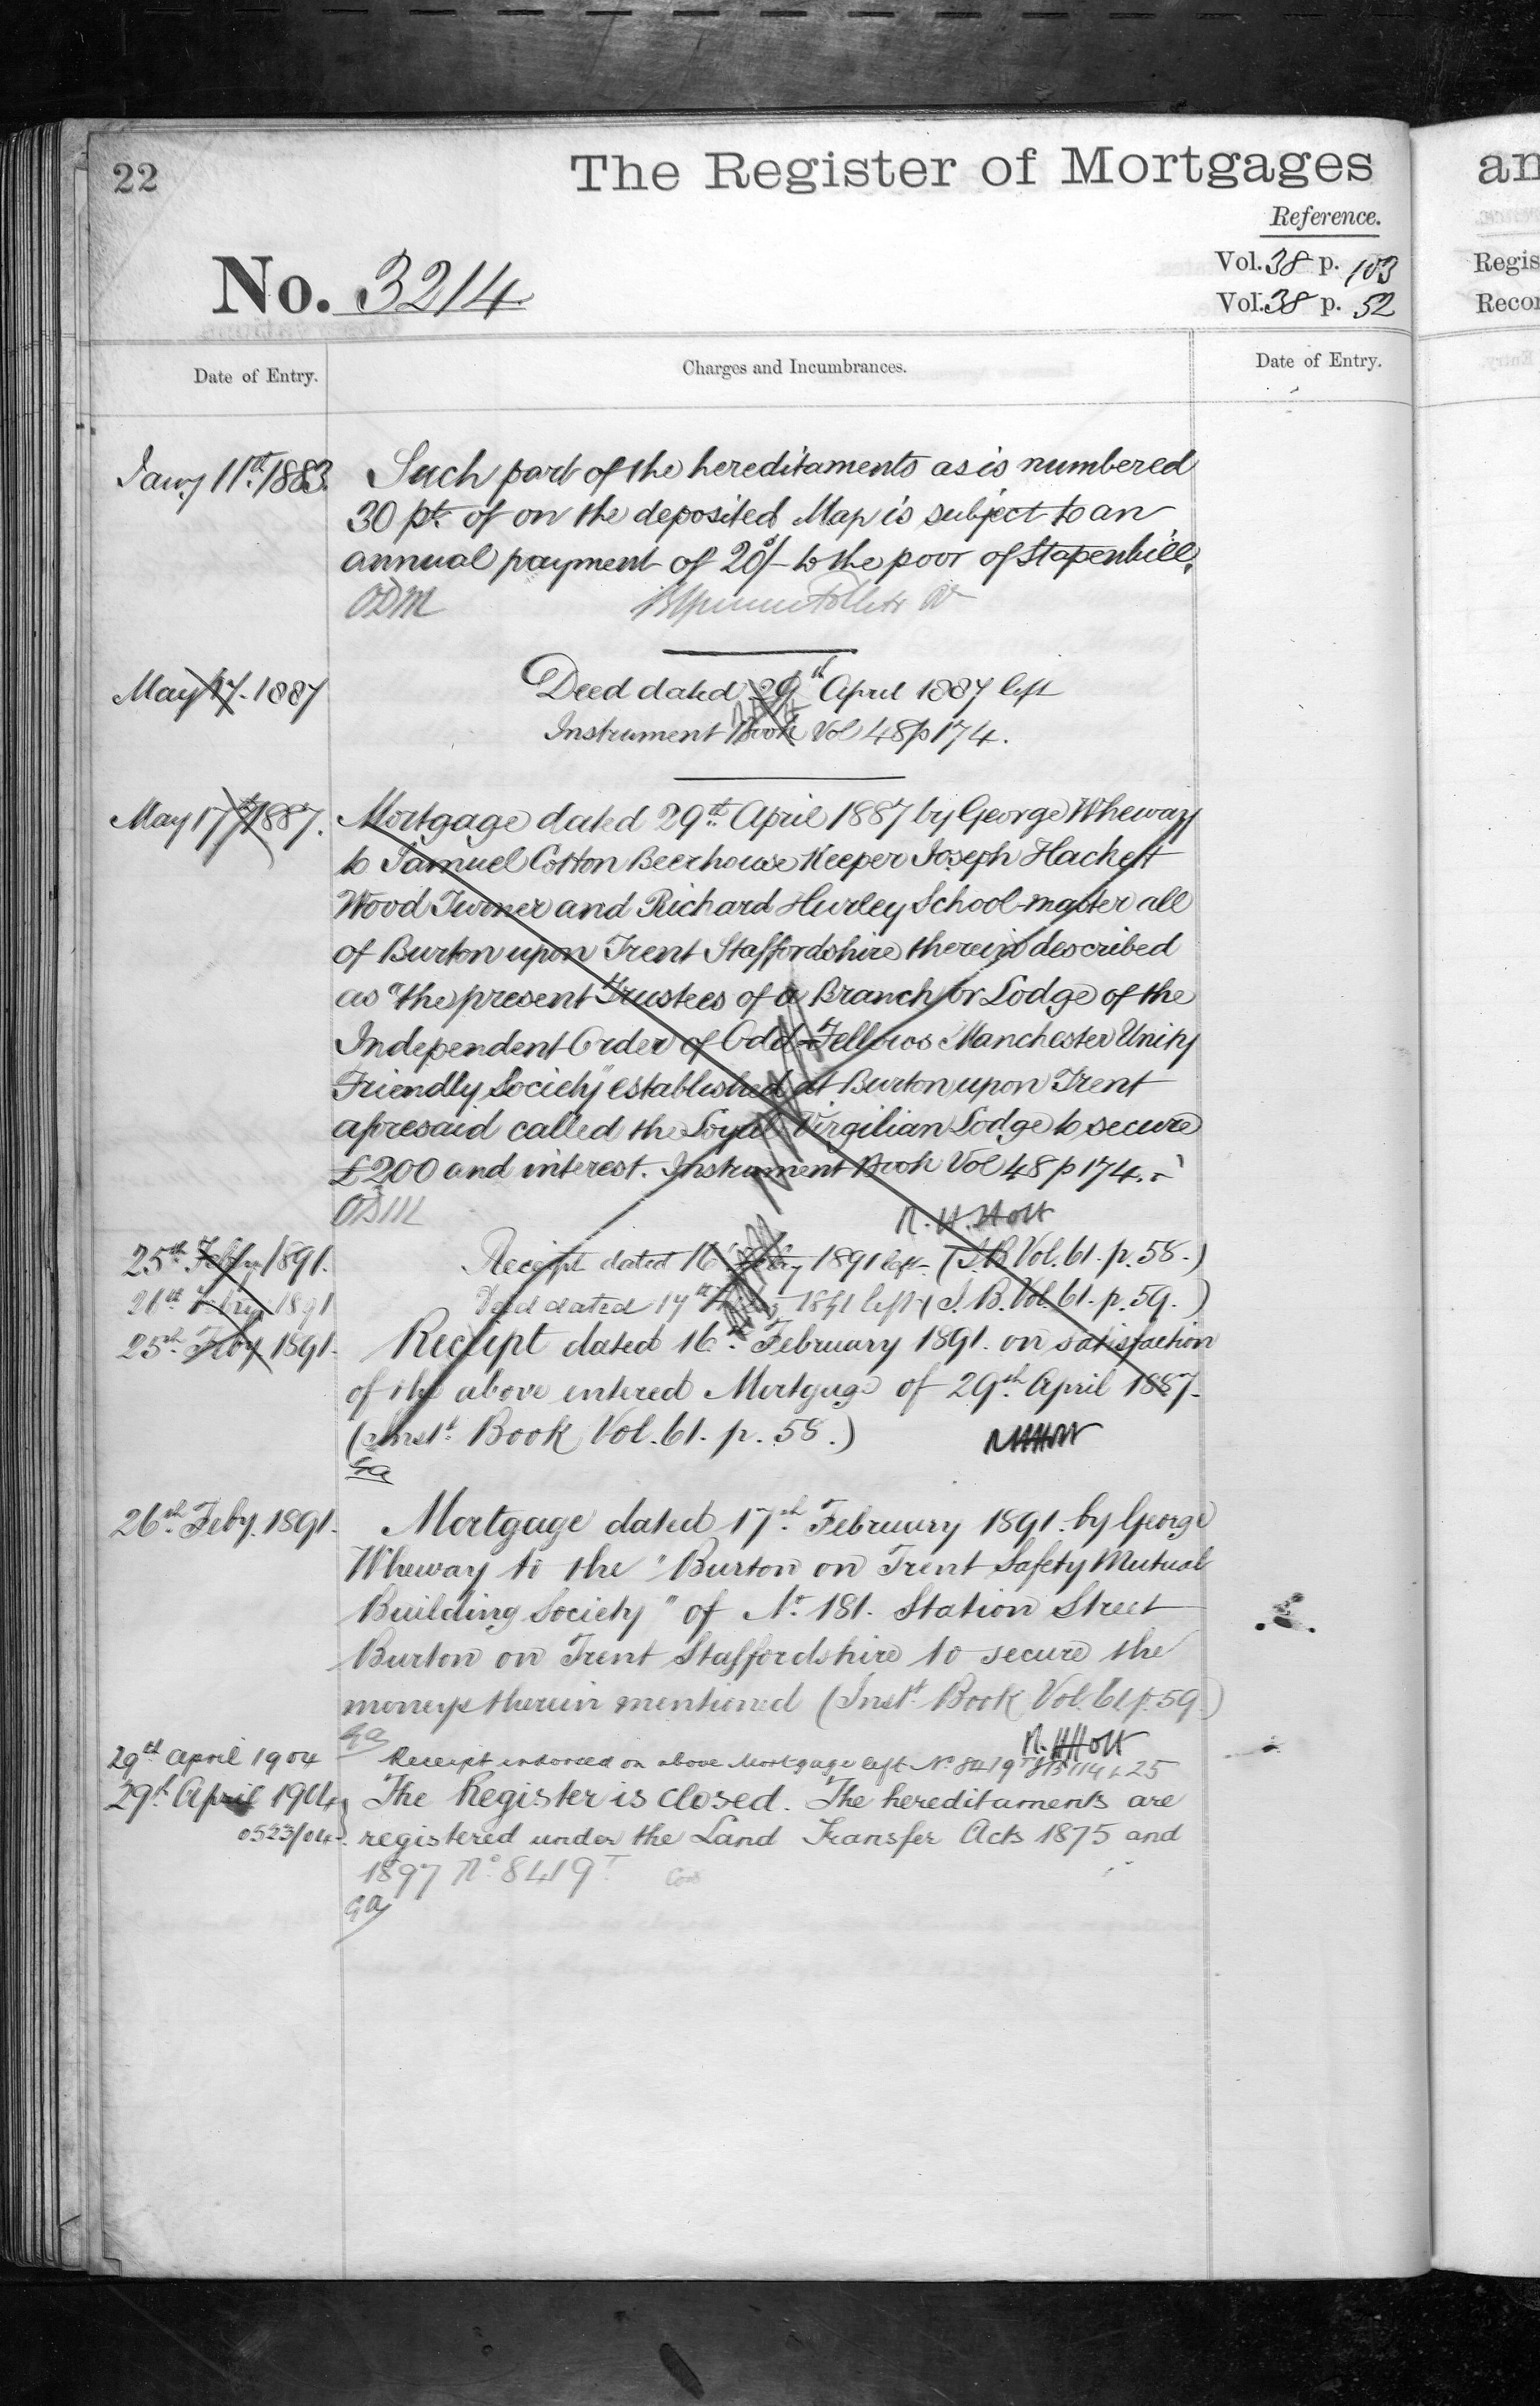 22
The Register of Mortgages
Reference.
No. 3214
Vol. 38 p. 103
Vol. 38 p. 52
Date of Entry.
Charges and Incumbrances.
Date of Entry.
Jany 11th 1883. Such part of the hereditaments as is numbered
30 pt. of on the deposited Map is subject to an
annual payment of 20s/- to the poor of Stapenhill.
ODM
May 17. 1887 Deed dated 29th April 1887 left
Instrument Book Vol 48 p 174.
May 17th 1887. Mortgage dated 29th April 1887 by George Wheway
to Samuel Cotton Beerhouse Keeper Joseph Hackett
Wood Turner and Richard Hurley School-master all
of Burton upon Trent Staffordshire therein described
as "the present Trustees of a Branch or Lodge of the
Independent Order of Odd-Fellows Manchester Unity
Friendly Society" established at Burton upon Trent
aforesaid called the Loyal Virgilian Lodge to secure
£200 and interest. Instrument Book Vol 48 p 174.
ODM
R. H. Holt
25th Feby 1891. Receipt dated 16 Feby 1891 left (I.B. Vol. 61. p. 58.)
Feby 1891 Deed dated 17th 1891 left (I. B. Vol. 61. p. 59.)
25th Feby 1891. Receipt dated 16th February 1891. on satisfaction
of the above entered Mortgage of 29th April 1887.
(Inst. Book Vol. 61. p. 58.)
RHHolt
Ga
26th Feby. 1891. Mortgage dated 17th February 1891. by George
Wheway to the "Burton on Trent Safety Mutual
Building Society" of No. 181. Station Street
Burton on Trent Staffordshire to secure the
moneys therein mentioned (Inst. Book Vol. 61. p. 59)
Ga
R. HHolt
29th April 1904 Receipt indorsed on above Mortgage left No 8419T
29th April 1904 The Register is closed. The hereditaments are
0523/04. registered under the Land Transfer Acts 1875 and
1897 No. 8419T
Ga
an
Regis
Recor